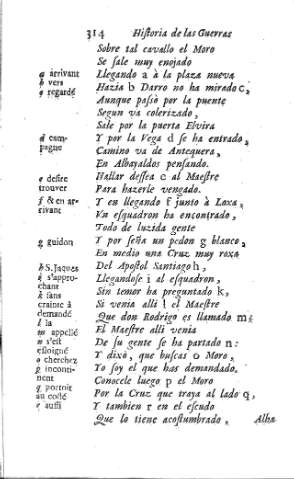 314 Historia de las Guerras
Sobre tal cavallo el Moro
Se sale muy enojado
a arrivant Llegando a à la plaza nueva
b vers Hazia b Darro no ha mirado c,
c regardé
Aunque passò por la puente
Segun va colerizado,
Sale por la puerta Elvira
d cam- Y por la Vega d se ha entrado,
pagne Camino va de Antequera,
En Albayaldos pensando.
e desire Hallar dessea e al Maestre
trouver Para hazerle vengado.
f & en ar- Y en llegando f junto à Loxa,
rivant Vn esquadron ha encontrado,
Todo de luzida gente
g guidon Y por seña un pedon g blanco,
En medio una Cruz muy roxa
h S. Jaques Del Apostol Santiago h,
i s'appro- Llegandose i al esquadron,
chant
k sans Sin temor ha preguntado k,
crainte à Si venia alli l el Maestre
demandé Que don Rodrigo es llamado m;
l la
m appellé El Maestre alli venia
n s'est De su gente se ha partado n:
esloigné
o cherchez Y dixo, que buscas o Moro,
p inconti- Yo soy el que has demandado.
nent Conocele luego p el Moro
q portoit Por la Cruz que traya al lado q,
au costé
r aussi Y tambien r en el escudo
Que lo tiene acostumbrado, Alha